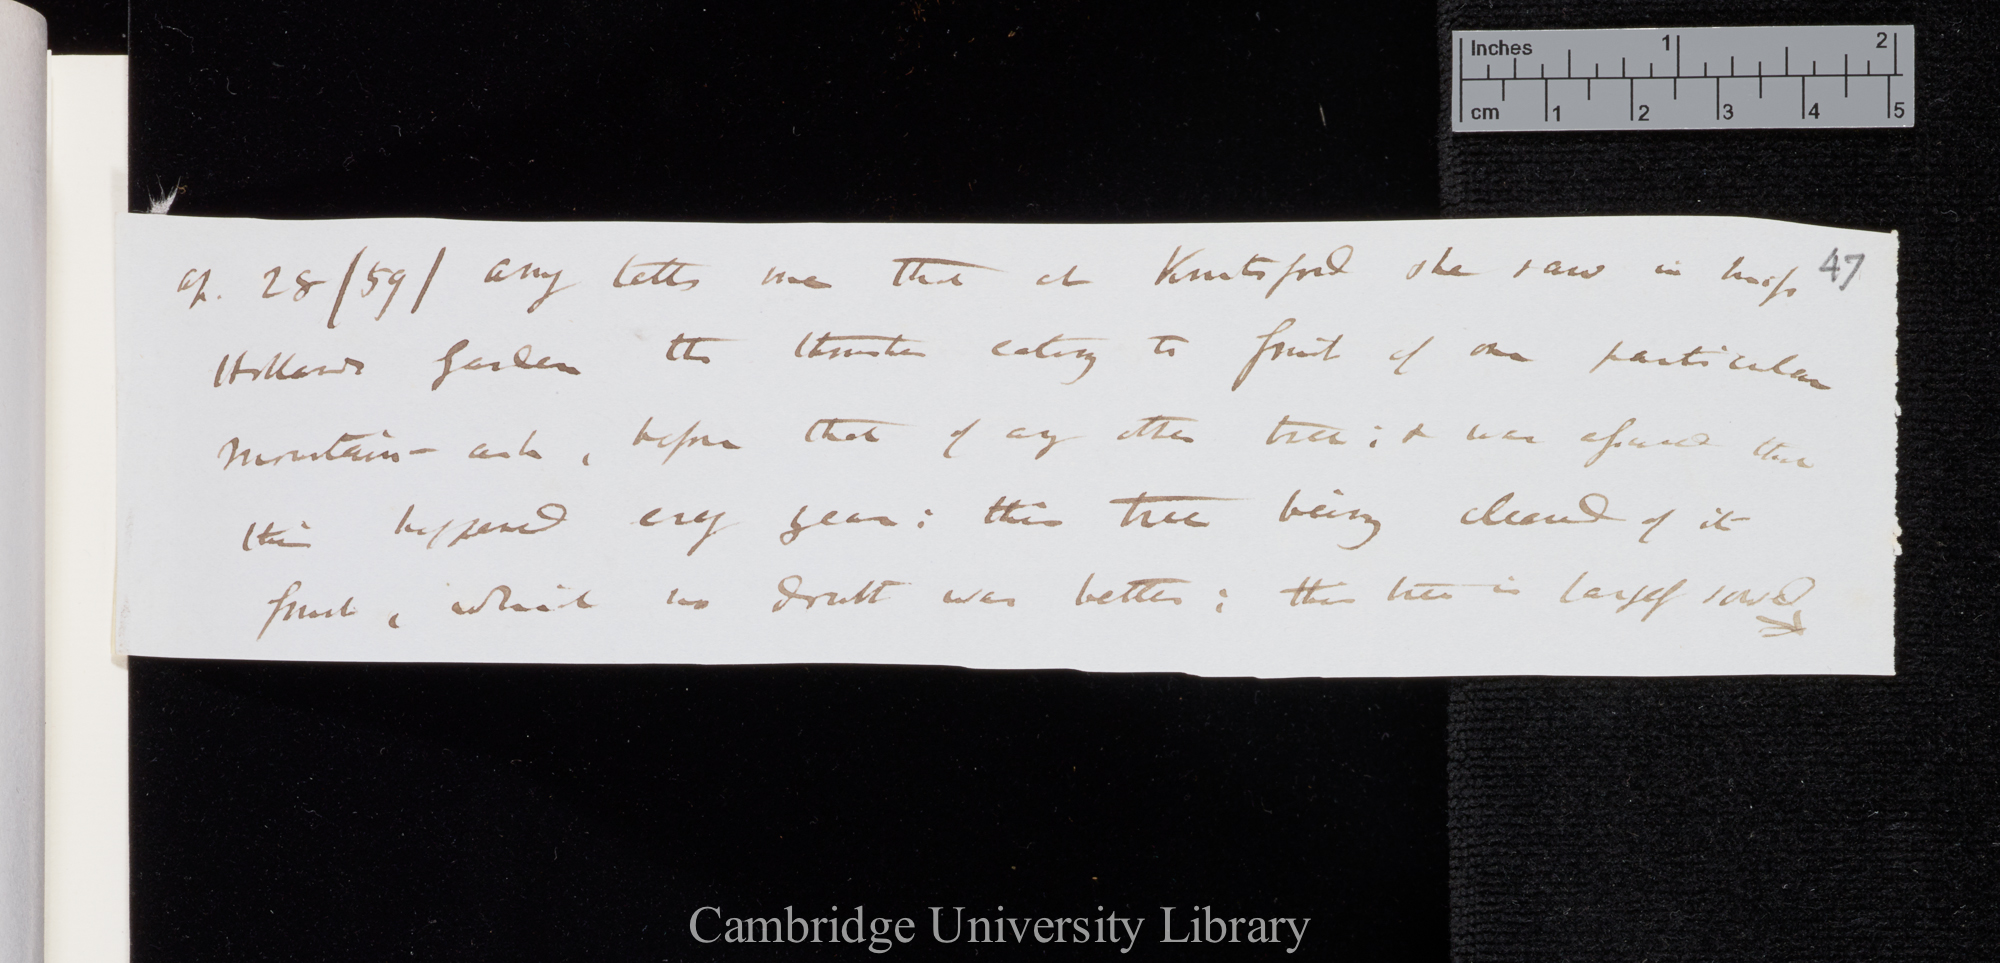 Inches 1 2
cm 1 2 3 4 5
47
Ap. 28/59/ Amy tells me that at Knutsford she saw in Miss
Hollands Garden the thrushes eating the fruit of one particular
mountain-ash, before that of any other tree; & was assured that
this happened every year: this tree being cleared of its
fruit, which no doubt was better; this tree is largely sowed
Cambridge University Library